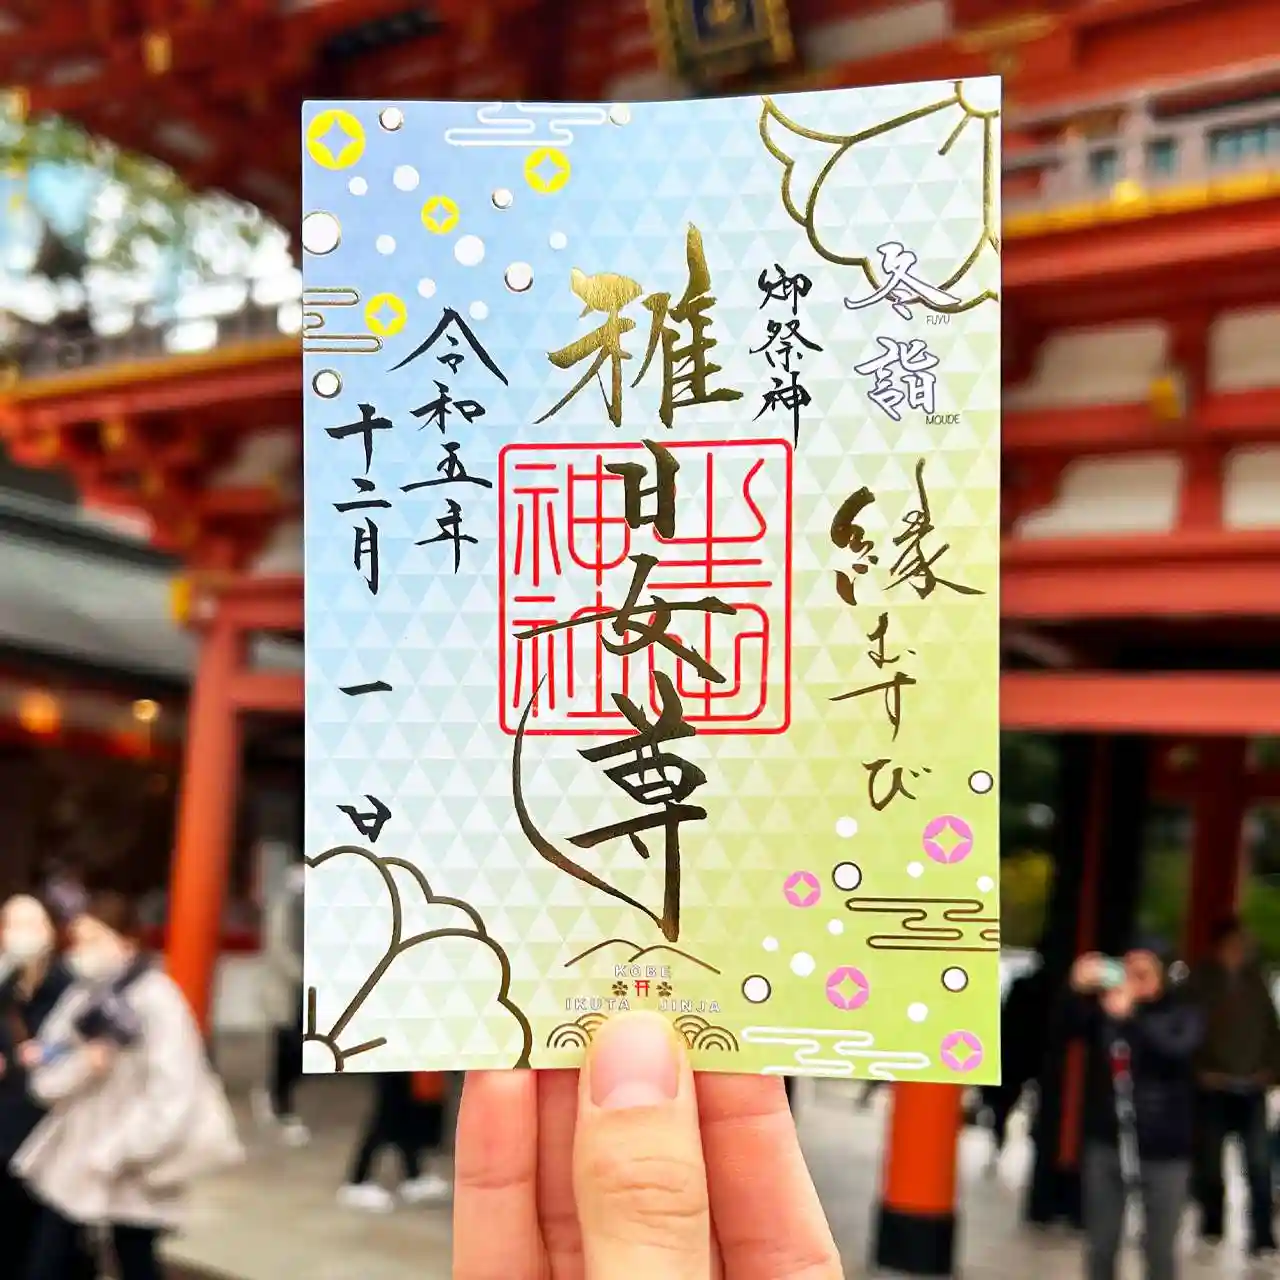 冬詣
FUYU
MOUDE
縁むすび
御祭神
稚日女尊
生田
神社
令和五年
十二月一日
KOBE
IKUTA JINJA